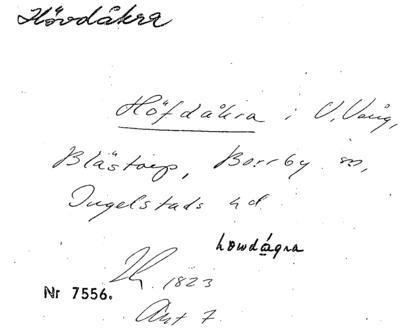 Hövdåkra
Höfdåkra i V. Vång,
Blästorp, Borrby sn,
Ingelstads hd
howdágra
1823
Nr 7556.
Akt 7.